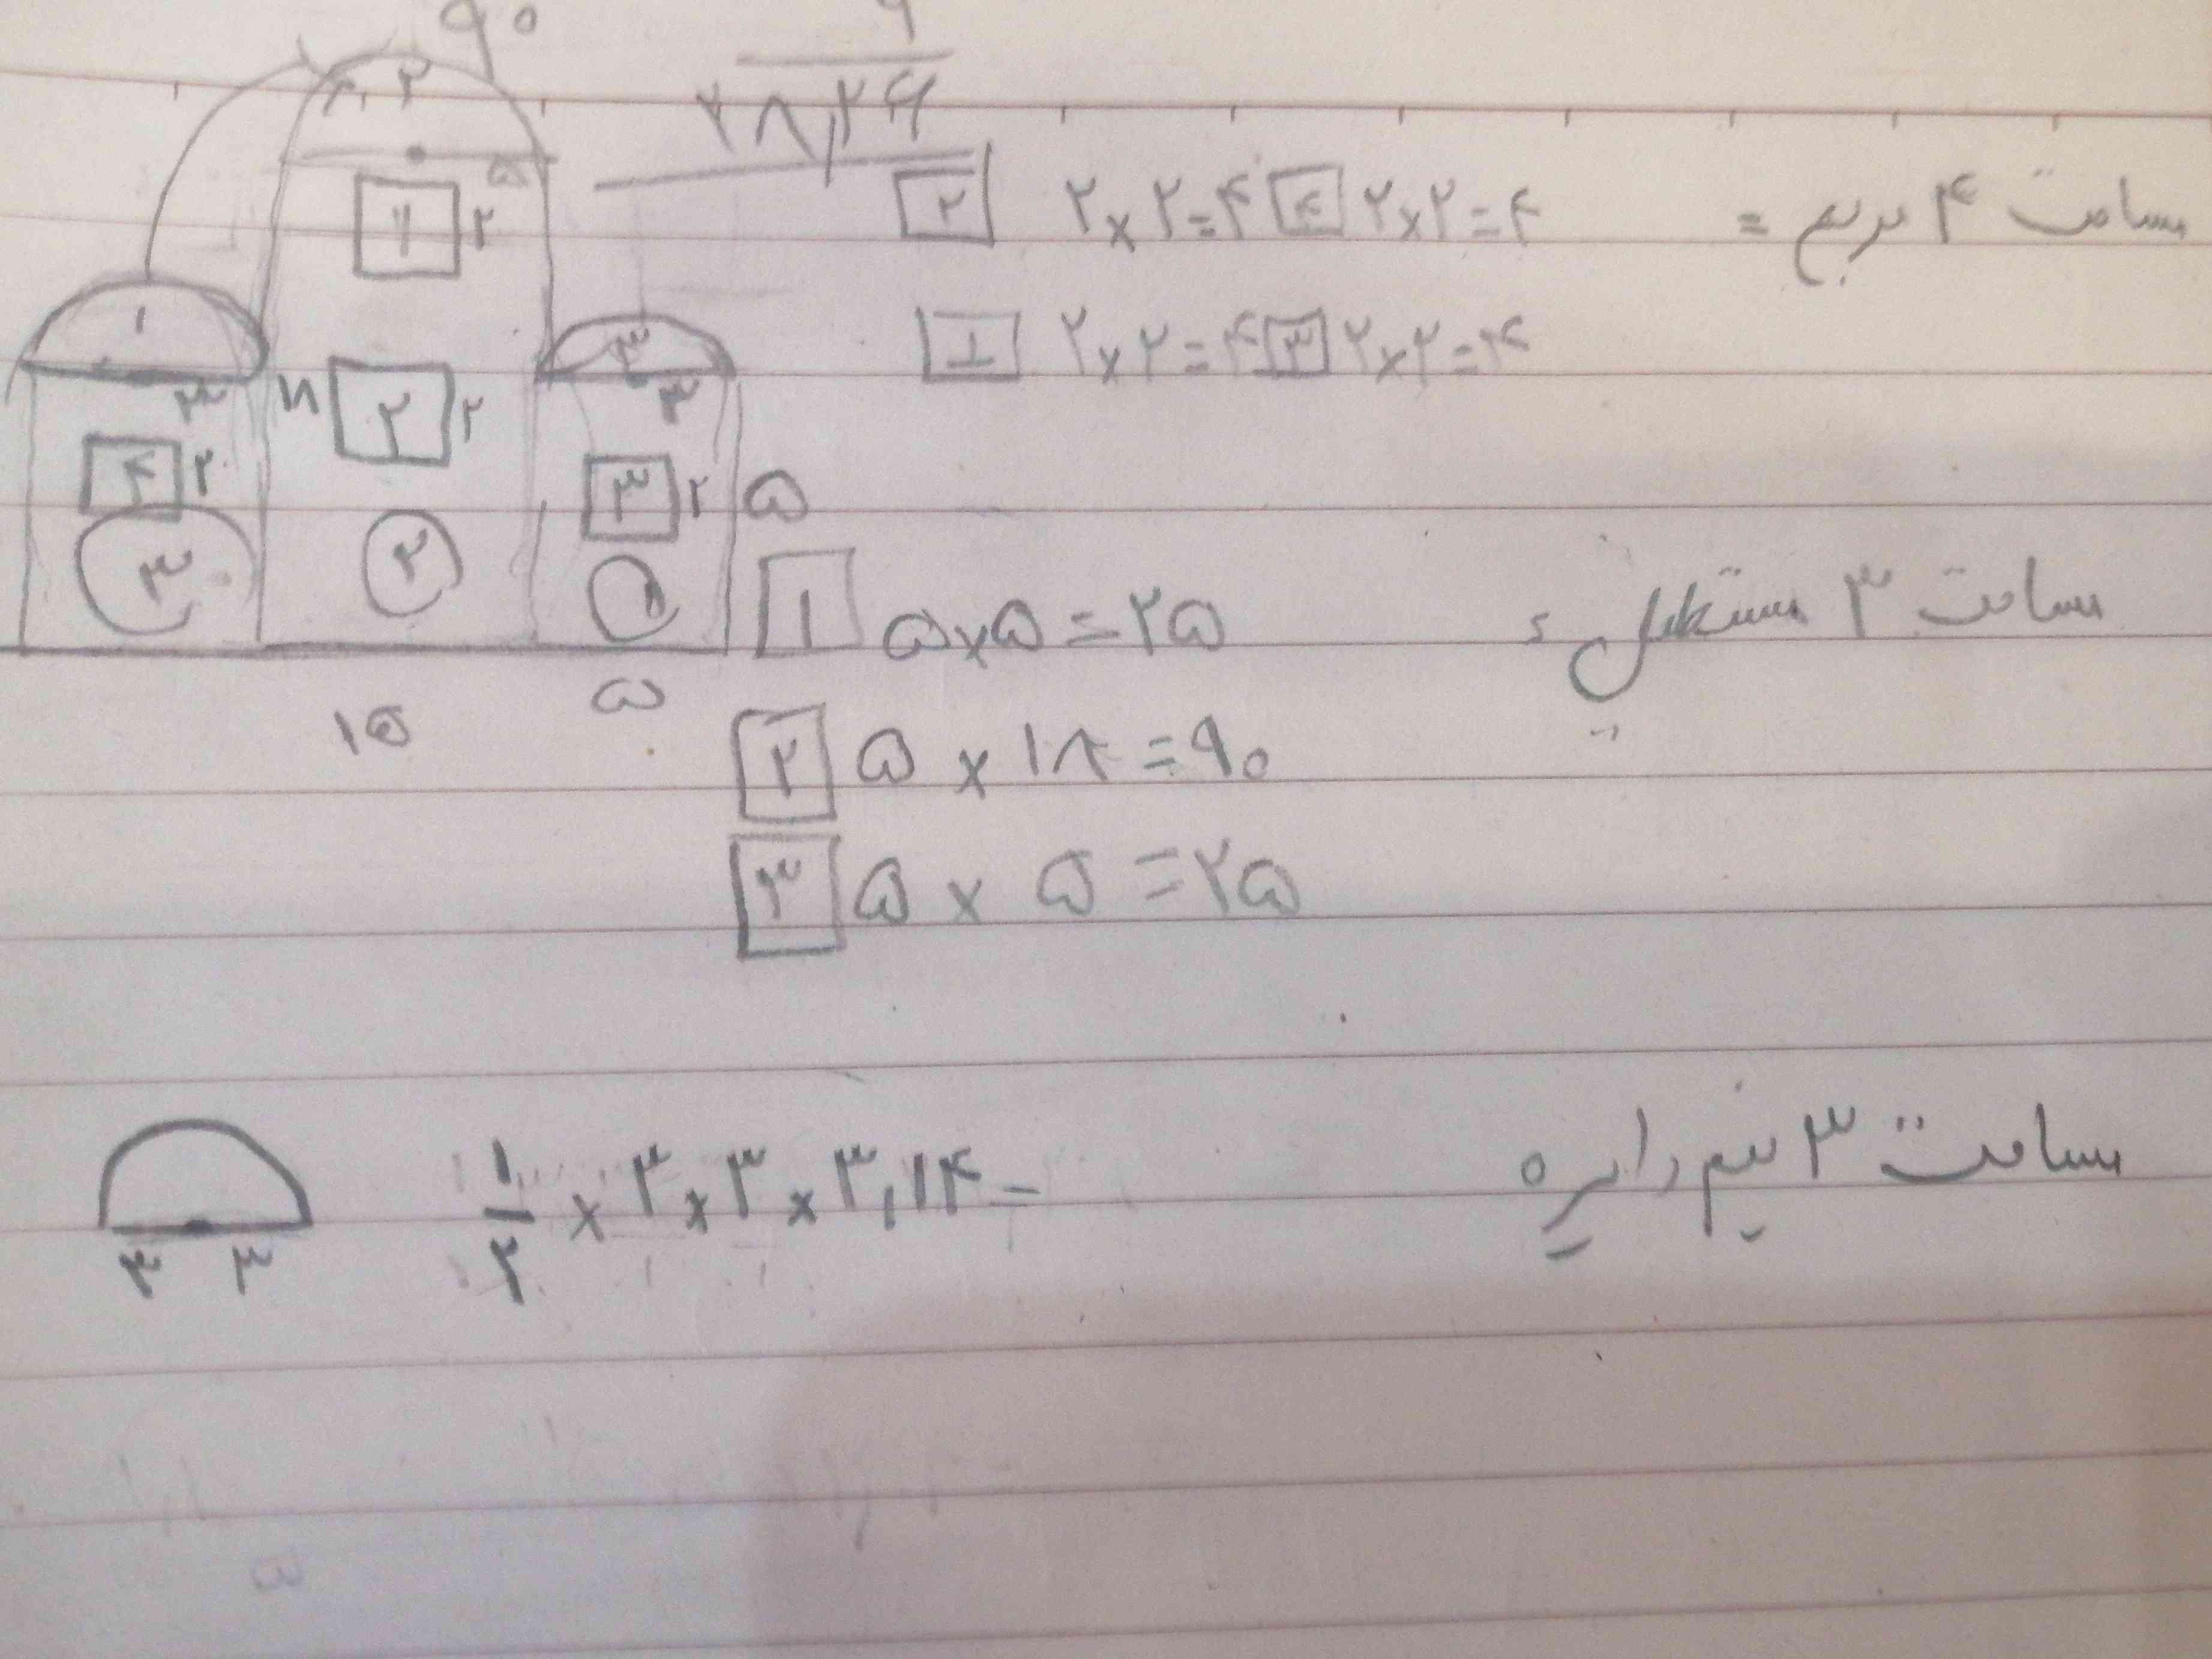 ۹۰
۹
۲۸,۲۶
۲
۵
۱
۲
مساحت ۴ مربع =
۲ ۲×۲=۴ ۴ ۲×۲=۴
۱ ۲×۲=۴ ۳ ۲×۲=۴
۱
۳
۳
۳
۲
۲
۴
۲
۳
۲
۵
۳
۲
۱
۱۵
۵
مساحت ۳ مستطیل =
۱ ۵×۵=۲۵
۲ ۵×۱۸=۹۰
۳ ۵×۵=۲۵
مساحت ۳ نیم دایره
۱/۲ × ۳×۳×۳,۱۴=
۳ ۳